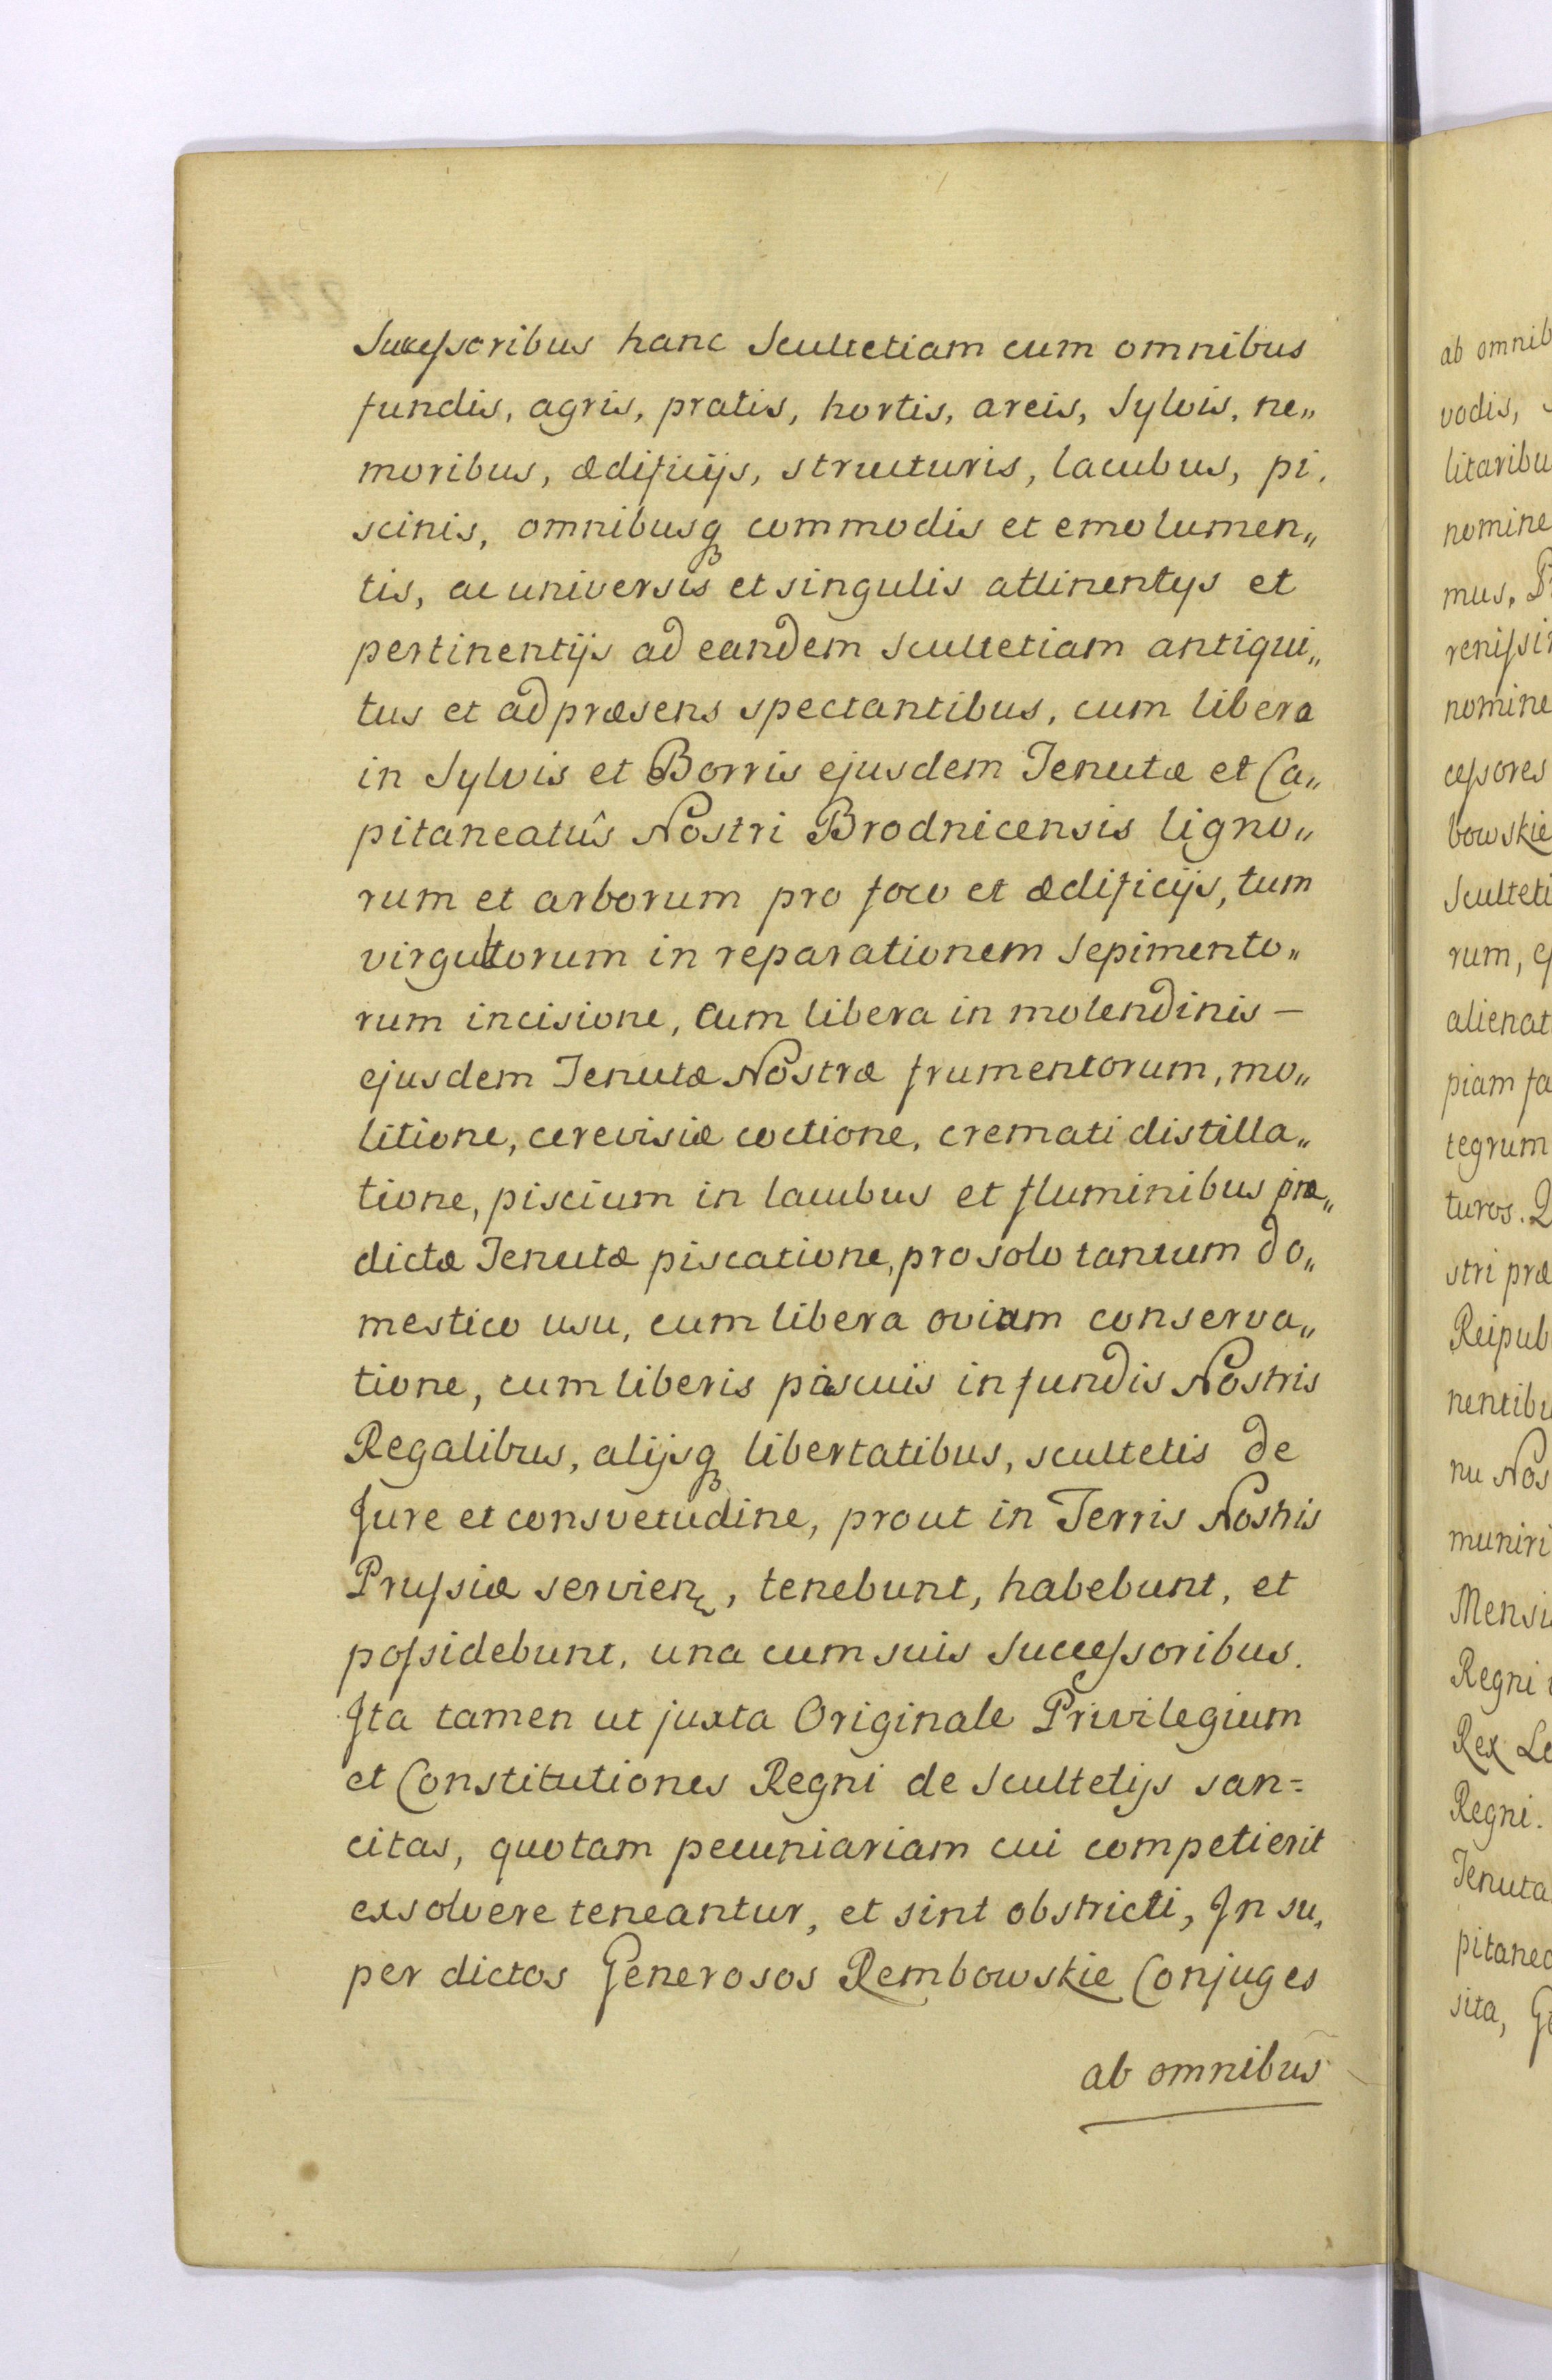 Successoribus hanc Scultetiam cum omnibus
fundis, agris, pratis, hortis, areis, Sylvis, ne„
moribus, ædificijs, structuris, lacubus, pi,
scinis, omnibusqꝫ commodis et emolumen„
tis, ac universis et singulis attinentijs et
pertinentijs ad eandem scultetiam antiqui„
tus et ad præsens spectantibus, cum libera
in Sylvis et Borris ejusdem Tenutæ et Ca„
pitaneatûs Nostri Brodnicensis ligno„
rum et arborum pro foco et ædificijs, tum
virgultorum in reparationem Sepimento„
rum incisione, cum libera in molendinis —
ejusdem Tenutæ Nostræ frumentorum, mo„
litione, cerevisiæ coctione, cremati distilla„
tione, piscium in lacubus et fluminibus præ„
dictæ Tenutæ piscatione, pro solo tantum do„
mestico usu, cum libera ovium conserva„
tione, cum liberis pascuis in fundis Nostris
Regalibus, alijsqꝫ libertatibus, scultetis de
Jure et consvetudine, prout in Terris Nostris
Prussiæ servien, tenebunt, habebunt, et
possidebunt, una cum suis Successoribus.
Ita tamen ut juxta Originale Privilegium
et Constitutiones Regni de Scultetijs san=
citas, quotam pecuniariam cui competierit
exsolvere teneantur, et sint obstricti, In su,
per dictos Generosos Rembowskie Conjuges
ab omnibus
ab omnib
vodis,
litaribu
nomine
mus. P
renissi
nomine
cessores
bowskie
Sculteti
rum, ej
alienat
piam fa
tegrum
turos. Q
stri præ
Reipub
nentibu
nu Nos
muniri
Mensi
Regni
Rex Le
Regni.
Tenuta
pitanea
sita, Ge